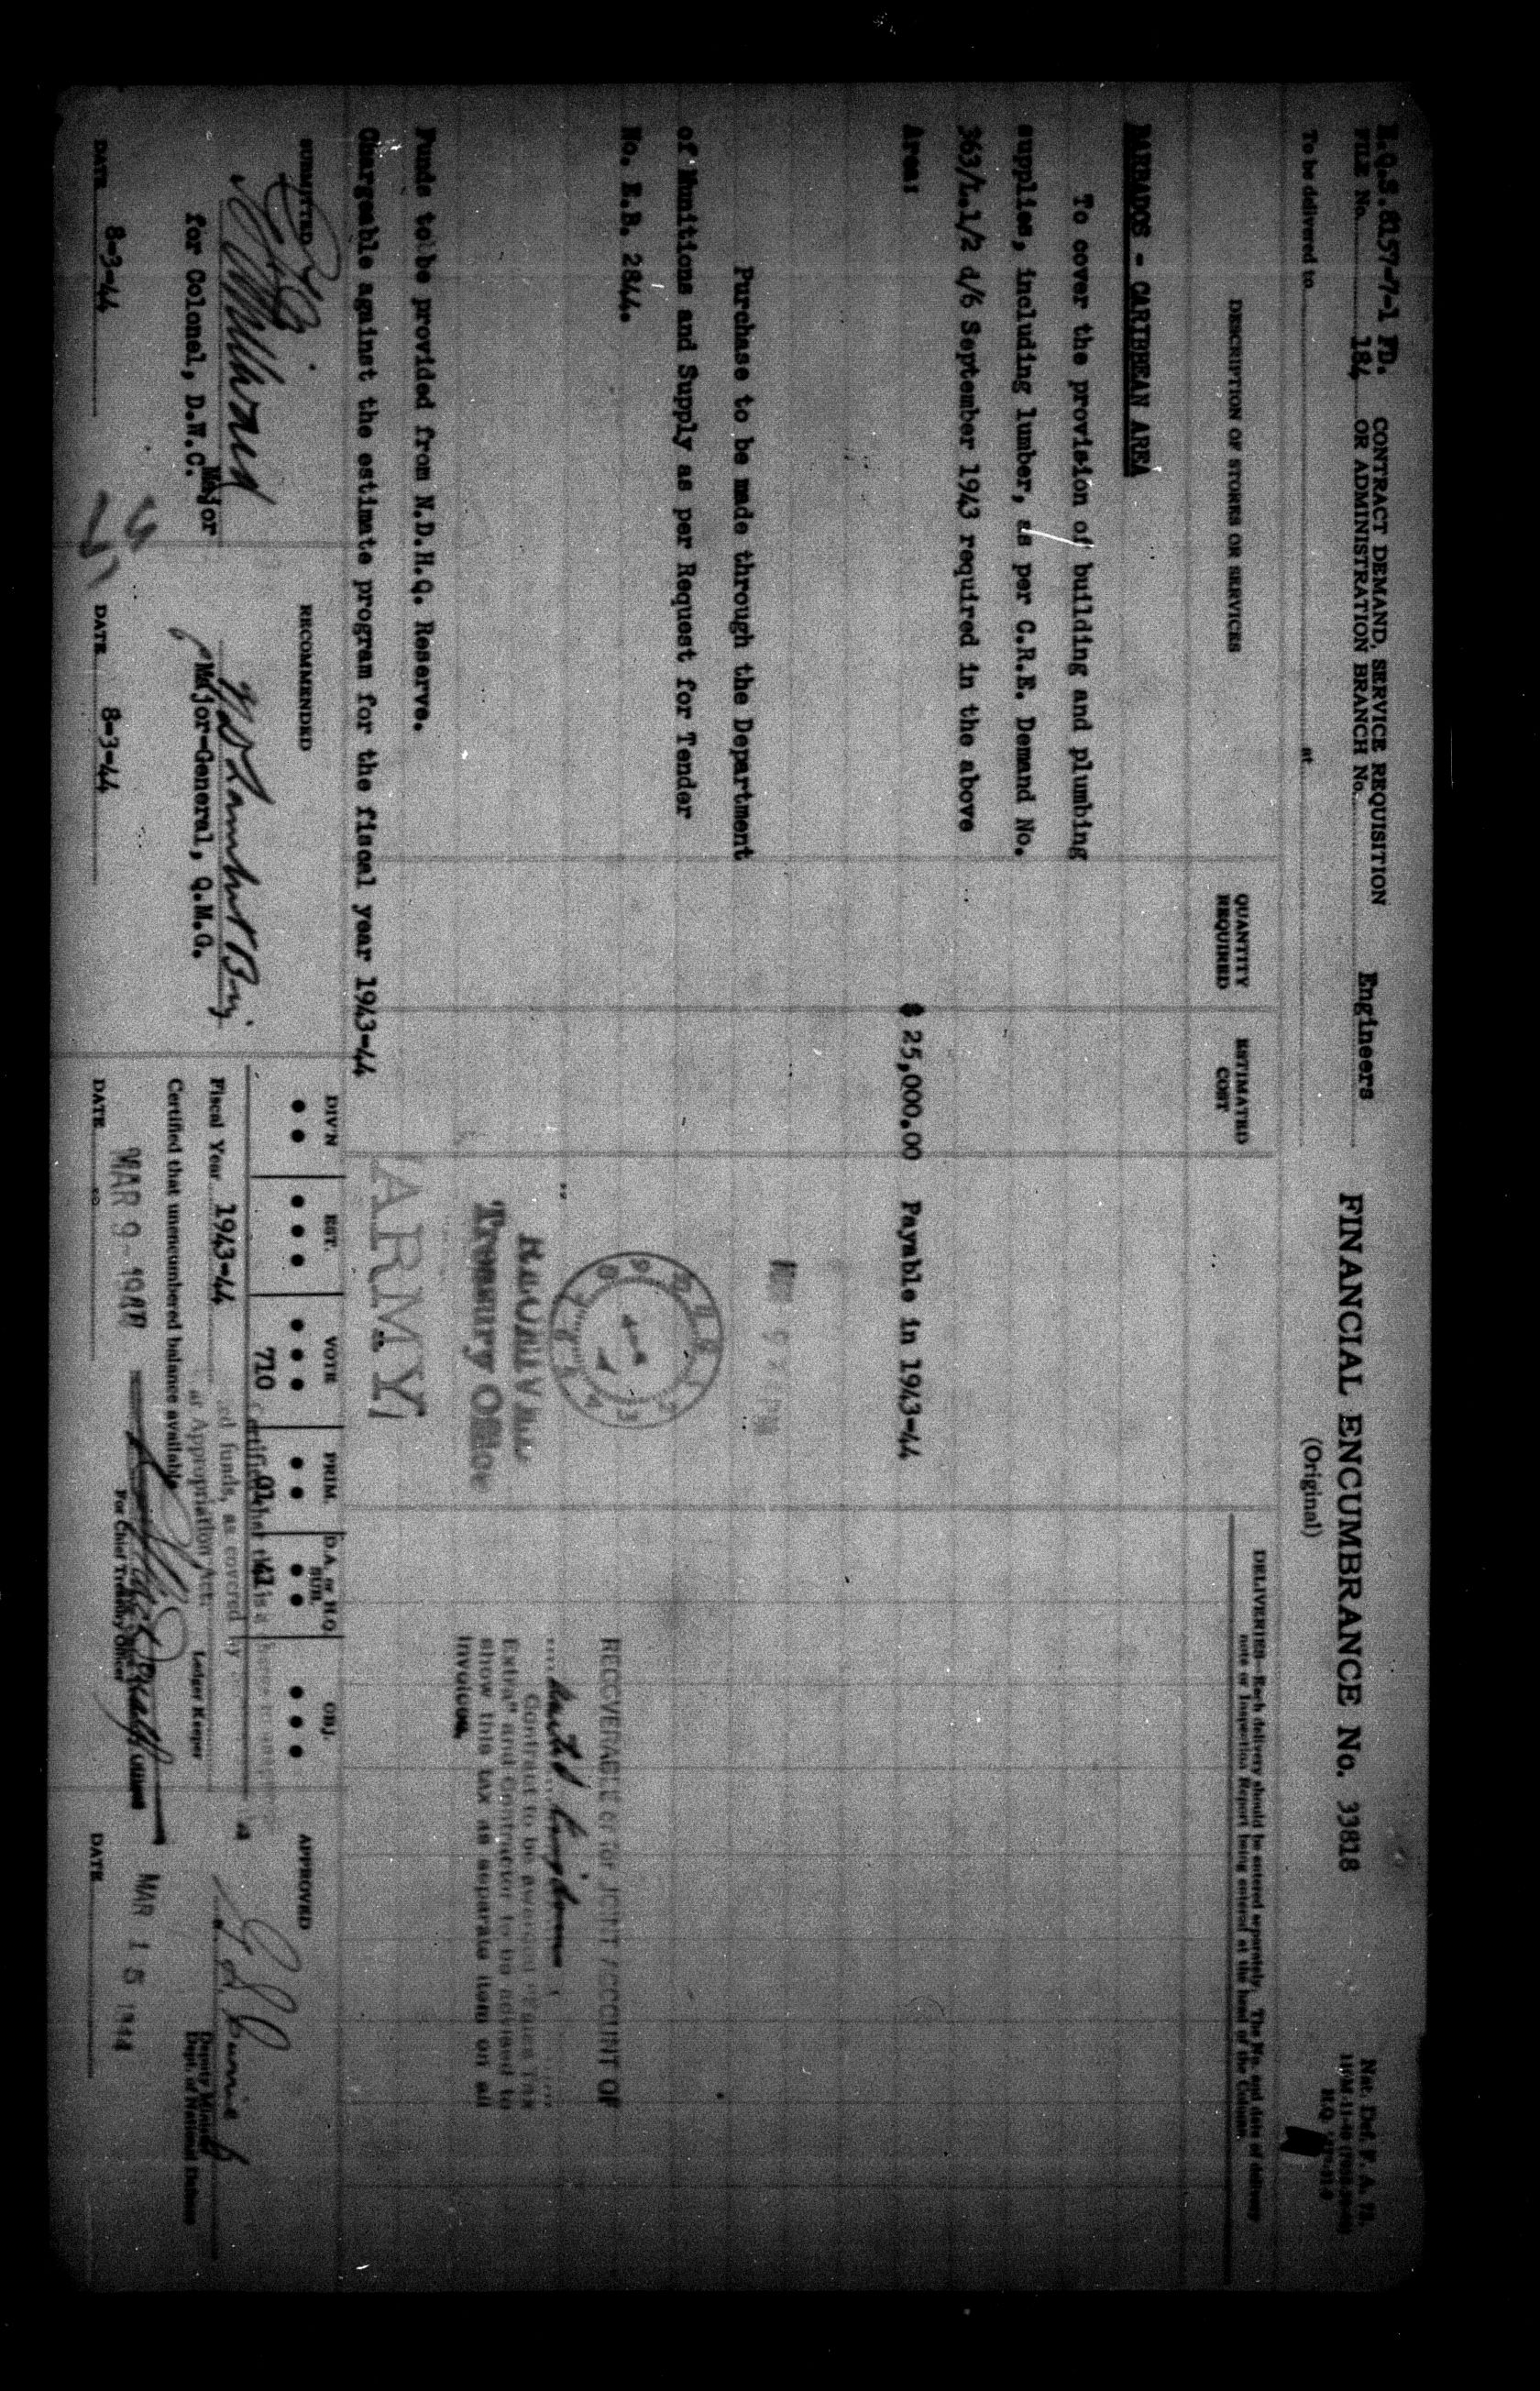 H.Q.S. 8157-7-1 FD.
FILE No. 184
CONTRACT DEMAND, SERVICE REQUISITION
OR ADMINISTRATION BRANCH No.
Engineers
FINANCIAL ENCUMBRANCE No. 33818
(Original)
Nat. Def. F. A.
To be delivered to
at
DESCRIPTION OF STORES OR SERVICES
QUANTITY
REQUIRED
ESTIMATED
COST
DELIVERIES—Each delivery should be entered separately. The No. and date of delivery
note or Inspection Report being entered at the head of the Column.
BARBADOS - CARIBBEAN AREA
To cover the provision of building and plumbing
supplies, including lumber, as per C.R.E. Demand No.
363/L.1/2 d/6 September 1943 required in the above
Area: $ 25,000.00 Payable in 1943-44
Purchase to be made through the Department
of Munitions and Supply as per Request for Tender
No. E.B. 2844.
RECEIVED
Treasury Office
ARMY
RECOVERABLE or for JOINT ACCOUNT OF
United Kingdom
Contract to be awarded "Sales Tax
Extra" and Contractor to be advised to
show this tax as separate item on all
invoices.
Funds to be provided from N.D.H.Q. Reserve.
Chargeable against the estimate program for the fiscal year 1943-44
SUBMITTED
Major
for Colonel, D.W.C.
DATE 8-3-44
RECOMMENDED
Major-General, Q.M.G.
DATE 8-3-44
DIV'N
EST.
VOTE
PRIM.
D.A. or H.Q.
SUB.
OBJ.
710
01
41
Fiscal Year 1943-44
Ledger Keeper
Certified that unencumbered balance available
For Chief Treasury Officer
DATE MAR 9 - 1944
APPROVED
Deputy Minister
Dept. of National Defence
DATE MAR 15 1944